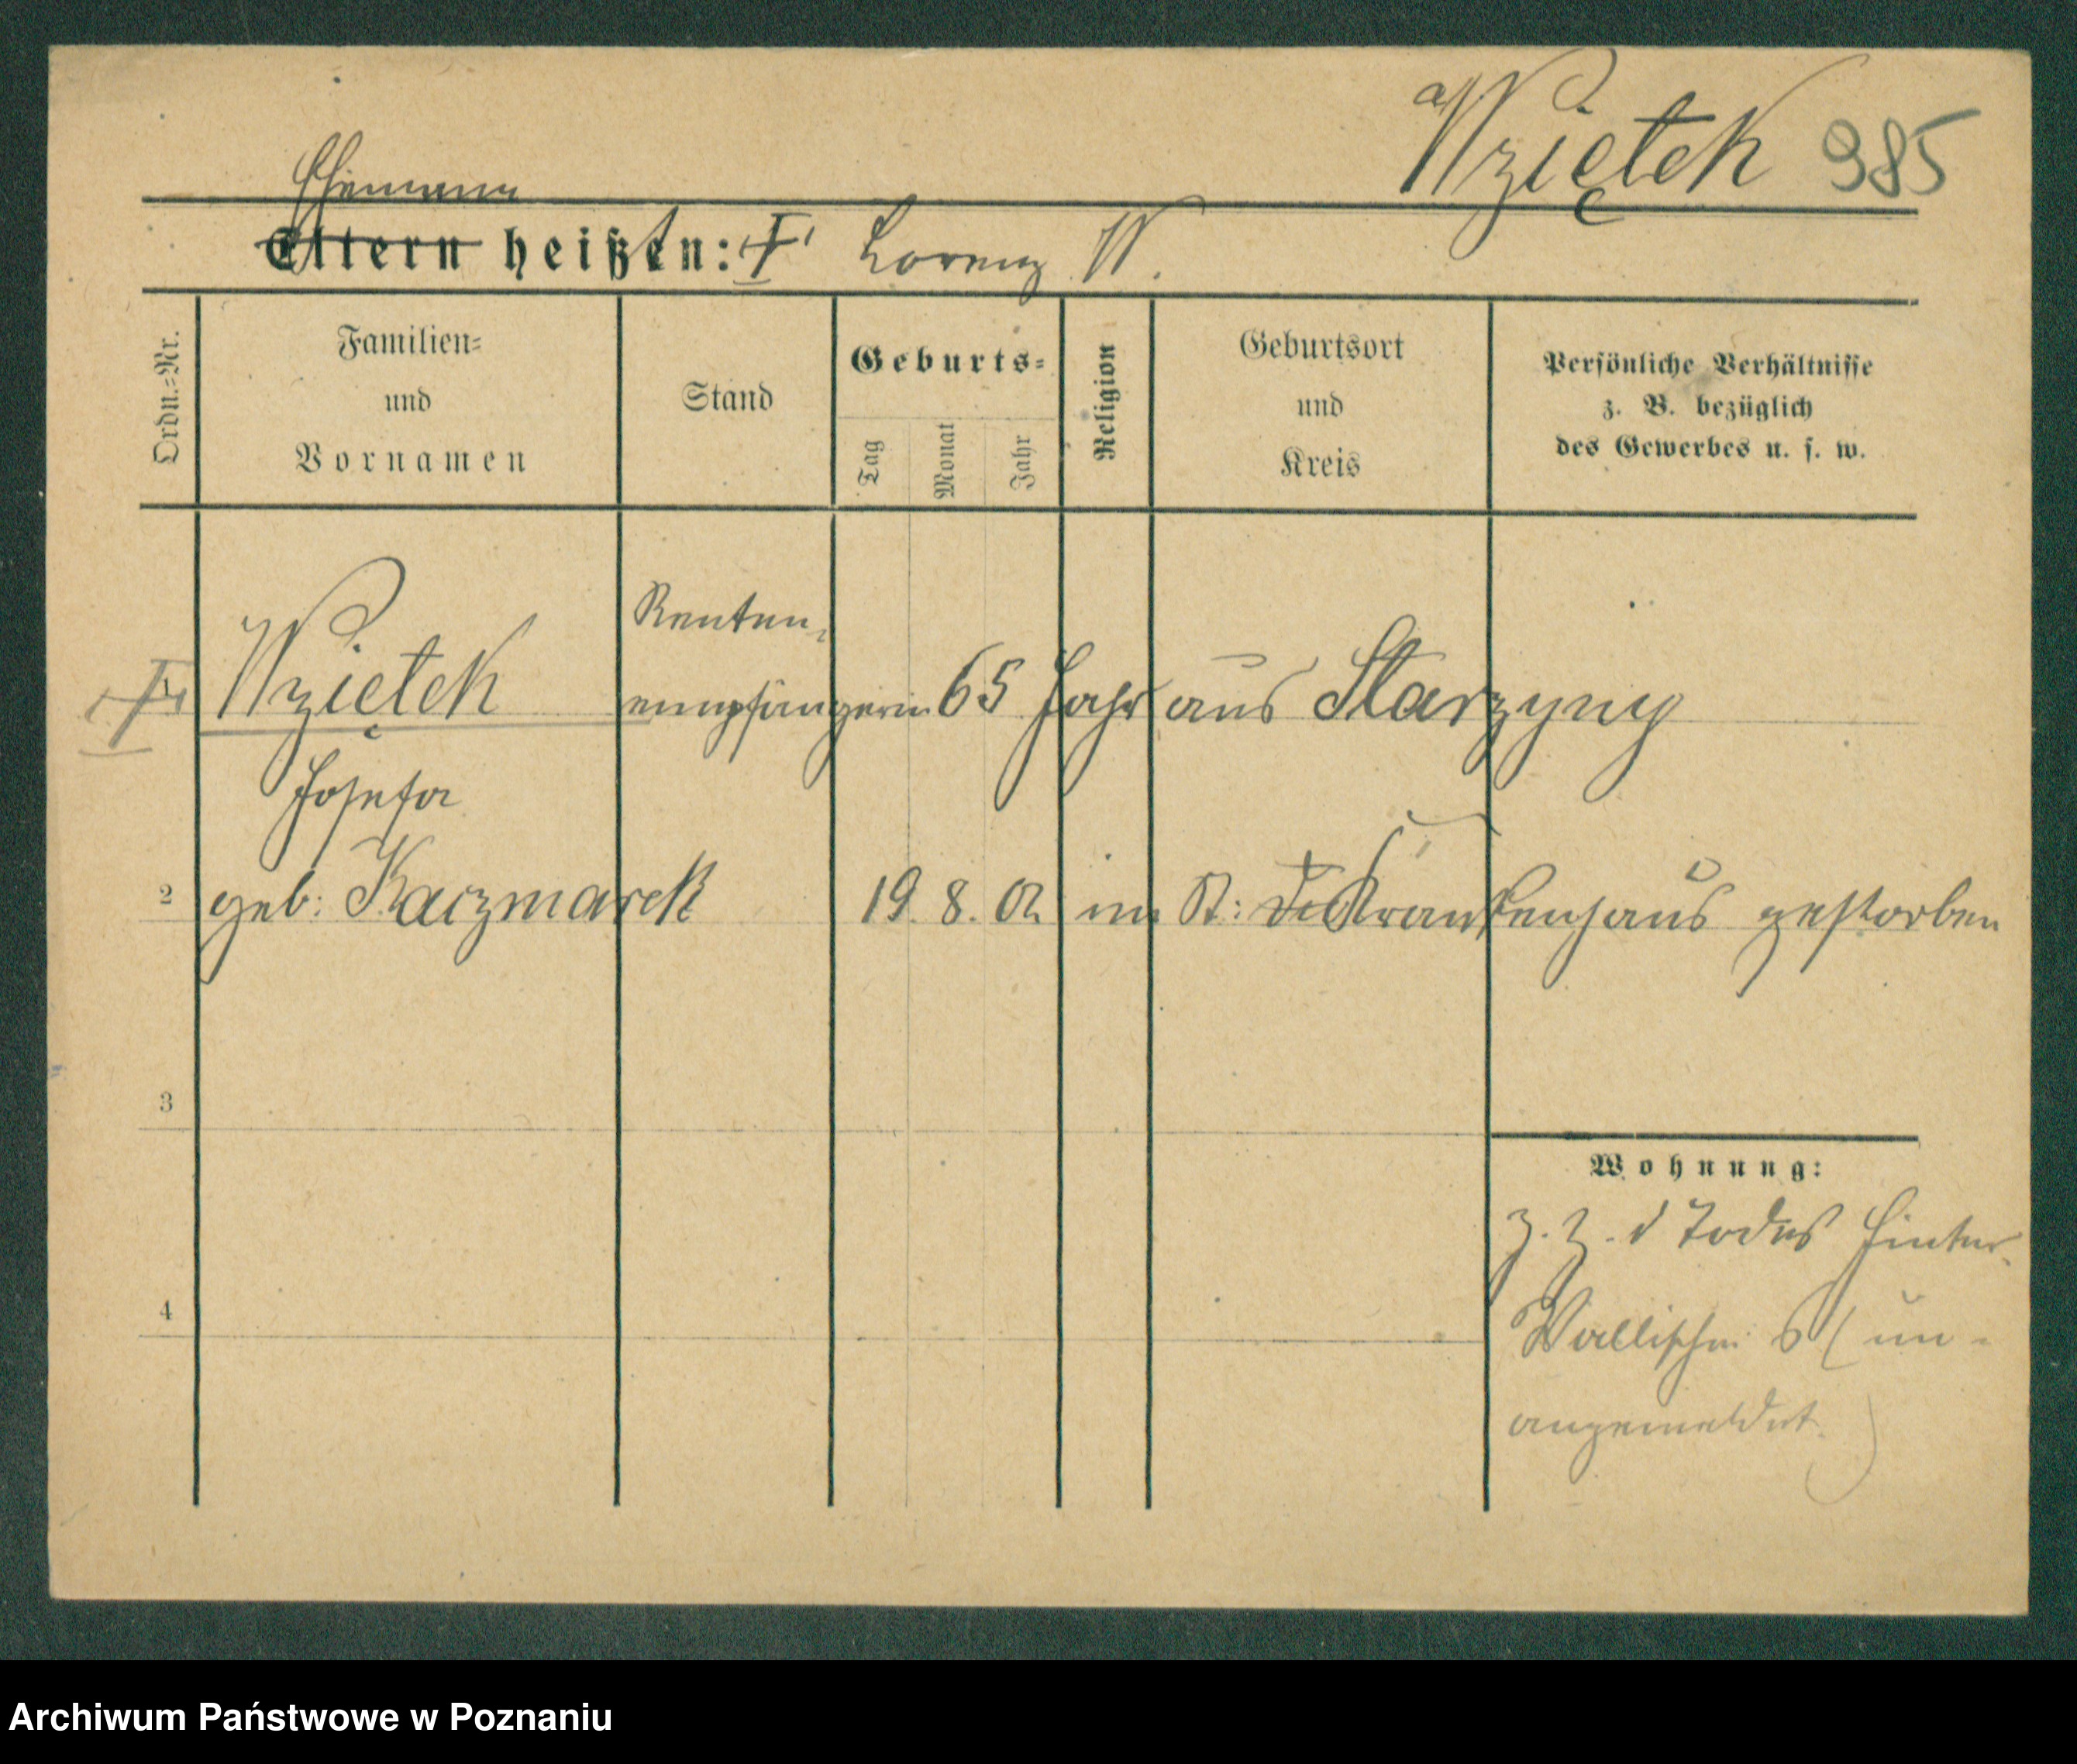 Wziętek 985
Ehemann
Eltern heißen: † Lorenz W.
Ordn.-Nr.
Familien-
und
Vornamen
Stand
Geburts-
Tag
Monat
Jahr
Religion
Geburtsort
und
Kreis
Persönliche Verhältnisse
z. B. bezüglich
des Gewerbes u. s. w.
Renten-
† Wziętek empfängerin 65 Jahr aus Starzyny
Josefa
2 geb: Kaczmarek 19. 8. 02 im St: Krankenhaus gestorben
3
Wohnung:
z. Z. d Todes Hinter-
4
Wallischei 6 (un-
angemeldet.)
Archiwum Państwowe w Poznaniu